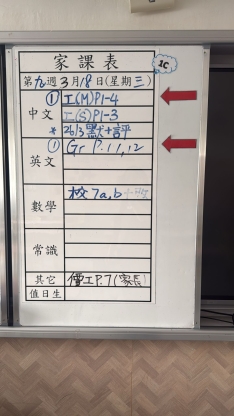 家課表
1C
第九週3月18日(星期三)
中文
① 工(M)P1-4
工(S)P1-3
* 26/3默+評
英文
① Gr P.11,12
數學
校7a,b
常識
其它
價工P.7(家長)
值日生